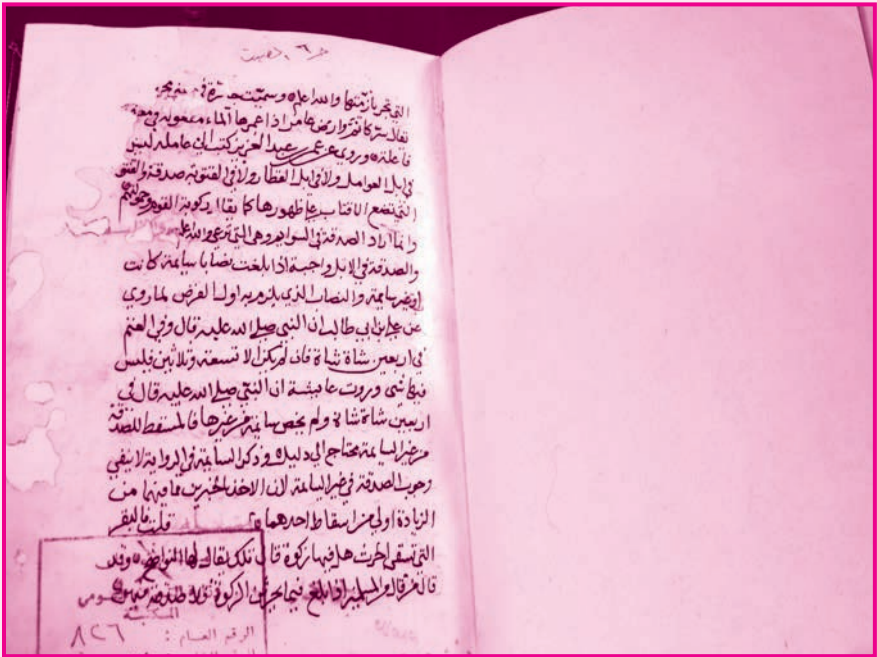 التي تجر بازمتها والله اعلم وسميت
فاعلة وروي عن عمر بن عبد العزيز كتب الى عامله ليس
في ابل العوامل ولا في ابل القطار ولا في القتوبة صدقة والقتوبة
التي توضع الاقتاب على ظهورها كما يقال ركوبة القوم وحلوبتهم
وانما اراد الصدقة في السوايم وهي التي ترعى والله اعلم
والصدقة في الابل واجبة اذا بلغت نصابا سايمة كانت
او غير سايمة والنصاب الذي يلزم به اول الفرض لما روي
عن علي بن ابي طالب ان النبي صلى الله عليه قال وفي الغنم
في اربعين شاة شاة فان لم يكن الا تسعة وثلاثين فليس
فيها شي وروت عايشة ان النبي صلى الله عليه قال في
اربعين شاة شاة ولم يخص سايمة من غيرها فالمسقط للصدقة
من غير السايمة محتاج الى دليل وذكر السايمة في الرواية لا ينفي
وجوب الصدقة في غير السايمة لان الاخذ بالخبرين مما فيهما من
الزيادة اولى من اسقاط احدهما قلت فالبقر
التي تسقي الحرث هل فيها زكوة قال تلك يقال لها النواضح وقد
قال من قال من المسلمين
المكتبة
الرقم العام : ٨٢٦